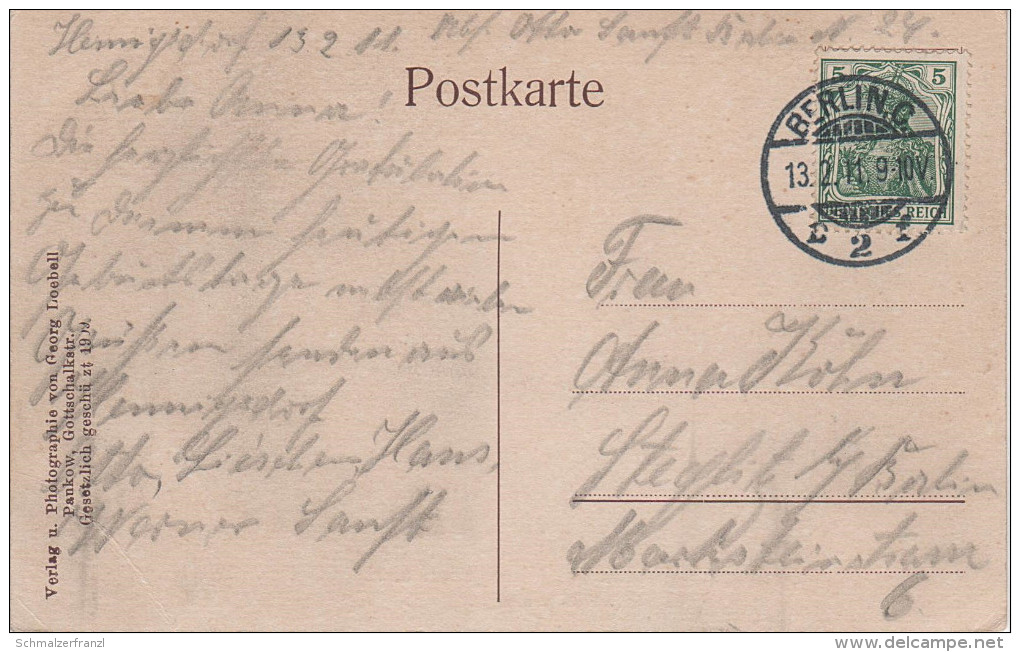 Hennigsdorf 13 2 11. Abs. Otto Sanft Berlin N. 24.
Postkarte
Liebe Anna!
Die herzlichste Gratulation
zu Deinem heutigen
Geburtstage nebst vielen
Grüßen senden aus
Hennigsdorf
Otto, Lieschen, Hans,
Werner Sanft
Verlag u. Photographie von Georg Loebell
Pankow, Gottschalkstr.
Gesetzlich geschützt
5 5
DEUTSCHES REICH
BERLIN C.
13.2.11. 9-10V.
2
Frau
Anna Köhn
Steglitz b/ Berlin
6
Schmalzerfranzl
delcampe.net